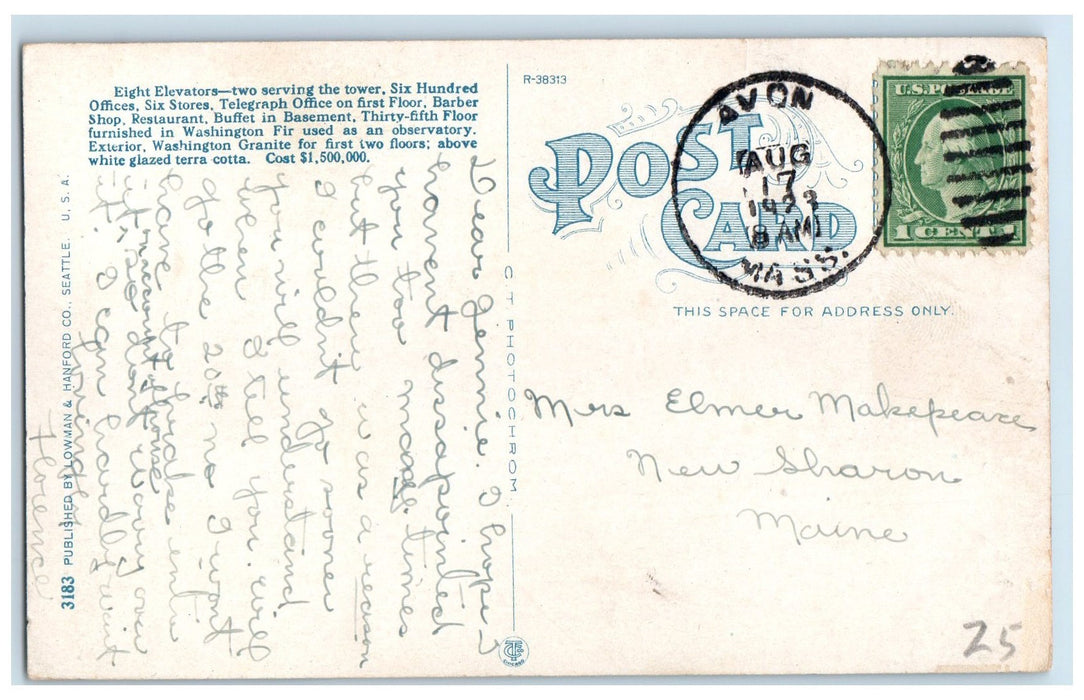 Eight Elevators—two serving the tower, Six Hundred
Offices, Six Stores, Telegraph Office on first Floor, Barber
Shop, Restaurant, Buffet in Basement, Thirty-fifth Floor
furnished in Washington Fir used as an observatory.
Exterior, Washington Granite for first two floors; above
white glazed terra cotta. Cost $1,500,000.
Dear Jennie. I hope I
havent dissapointed
you too many times
but there was a reason
I couldn't go sooner
you will understand
when I tell you. will
go the 20th no I wont
have to
account
if
it. I can hardly wait
Lovingly
Florence
3183 PUBLISHED BY LOWMAN & HANFORD CO., SEATTLE, U. S. A.
C T PHOTOCHROM
R-38313
POST
CARD
AVON
AUG
17
1923
8 AM
MASS.
U.S. POSTAGE
1 CENT 1
THIS SPACE FOR ADDRESS ONLY.
Mrs Elmer Makepeace
New Sharon
Maine
25
CHICAGO